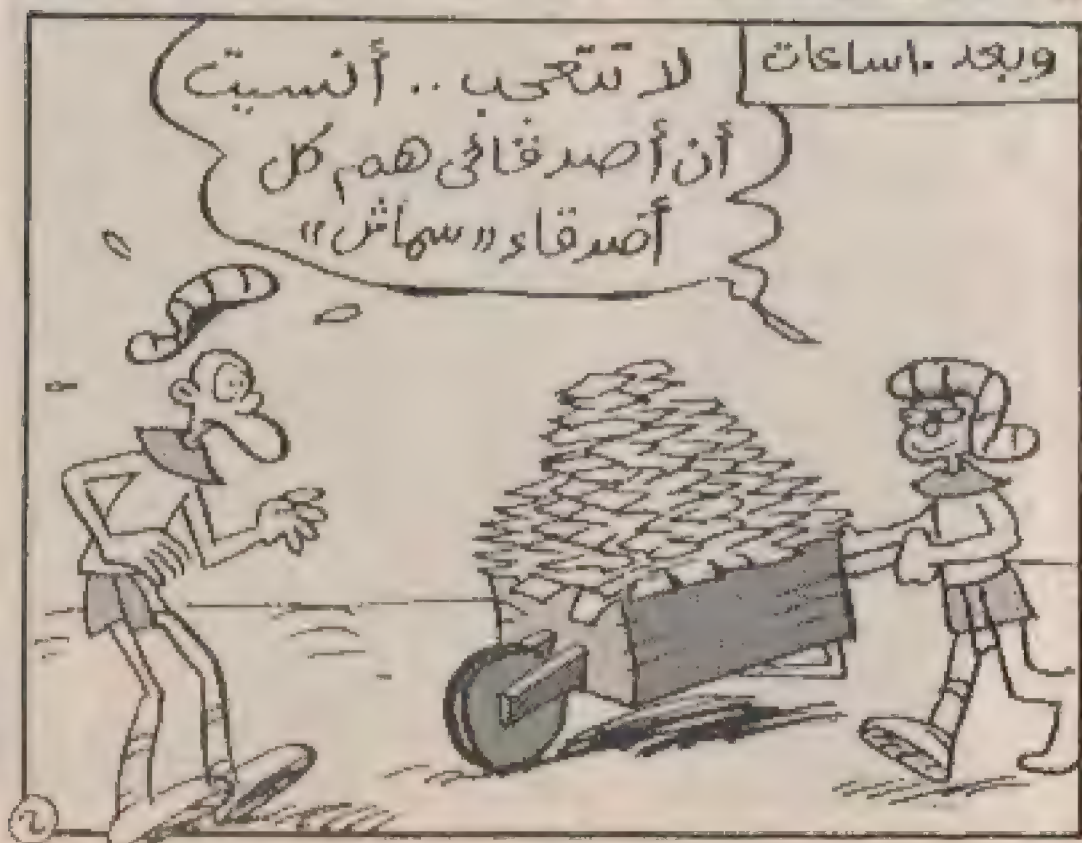 وبعد ١٠ ساعات
لا تتعجب .. أنسيت
أن أصدقائى هم كل
أصدقاء «سماش»
٢